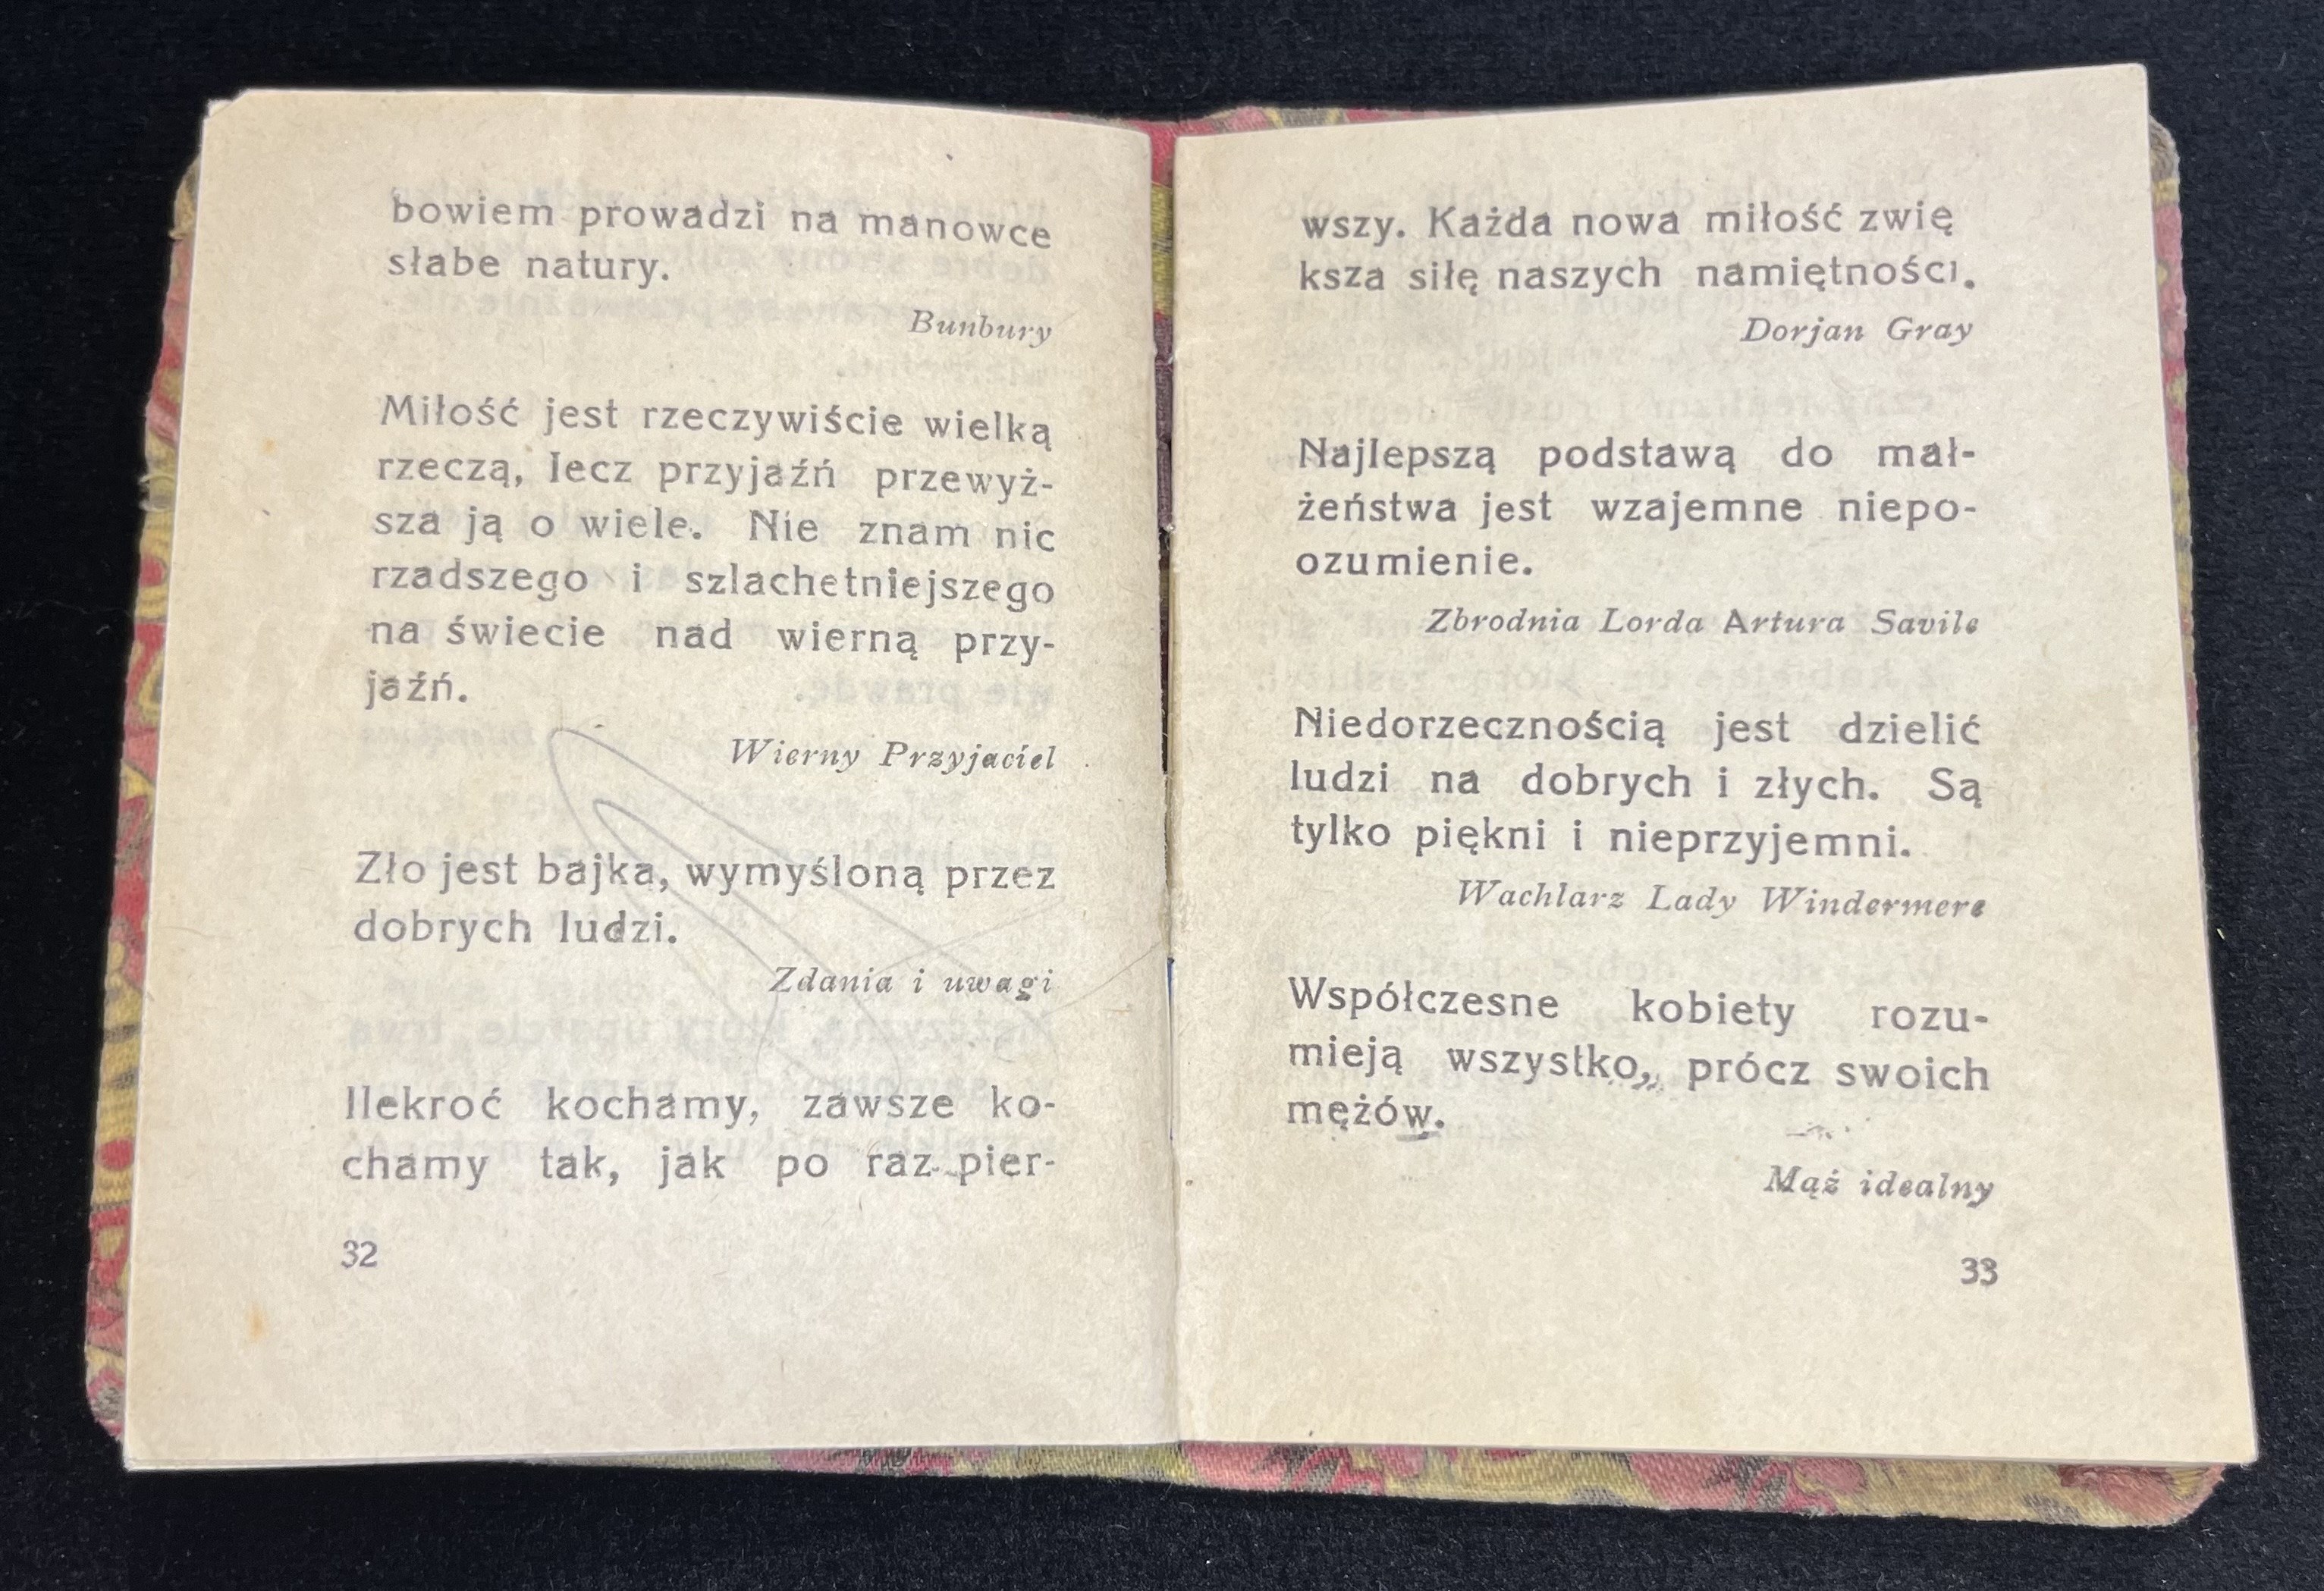 bowiem prowadzi na manowce
słabe natury.
Bunbury
Miłość jest rzeczywiście wielką
rzeczą, lecz przyjaźń przewyż-
sza ją o wiele. Nie znam nic
rzadszego i szlachetniejszego
na świecie nad wierną przy-
jaźń.
Wierny Przyjaciel
Zło jest bajka, wymyśloną przez
dobrych ludzi.
Zdania i uwagi
Ilekroć kochamy, zawsze ko-
chamy tak, jak po raz pier-
32
wszy. Każda nowa miłość zwię
ksza siłę naszych namiętności.
Dorjan Gray
Najlepszą podstawą do mał-
żeństwa jest wzajemne niepo-
ozumienie.
Zbrodnia Lorda Artura Savile
Niedorzecznością jest dzielić
ludzi na dobrych i złych. Są
tylko piękni i nieprzyjemni.
Wachlarz Lady Windermere
Współczesne kobiety rozu-
mieją wszystko, prócz swoich
mężów.
Mąż idealny
33